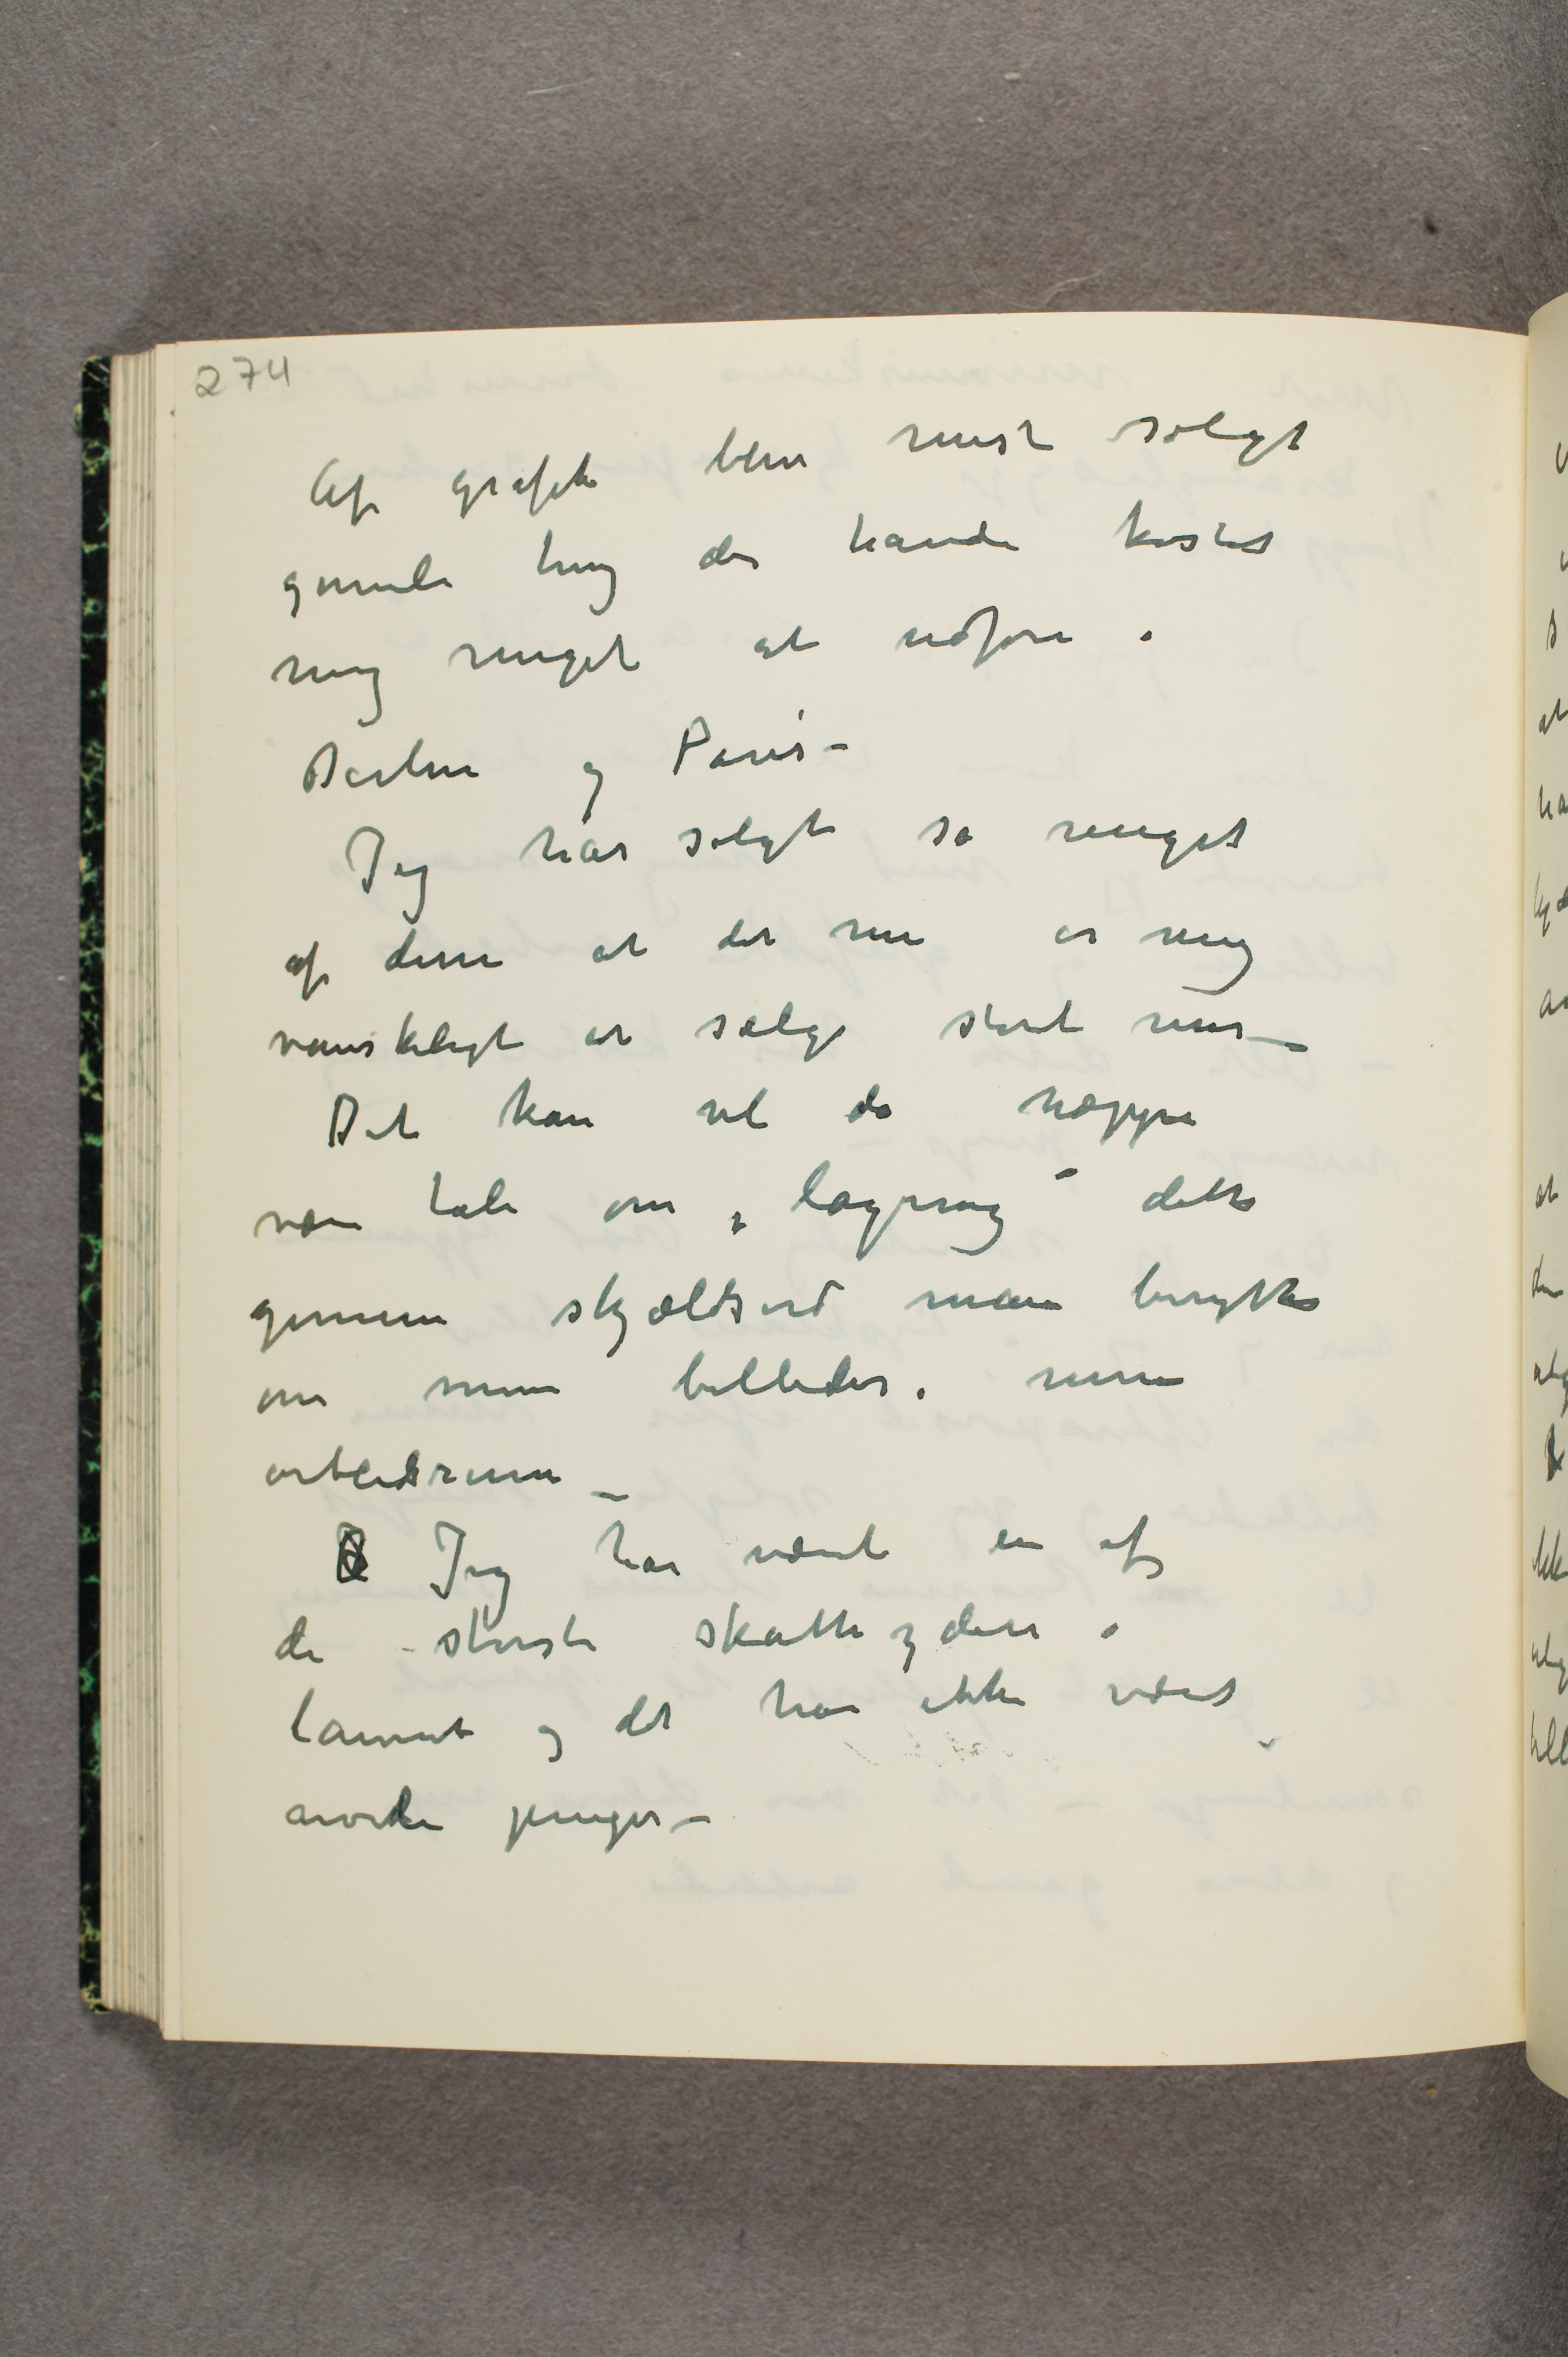 274
Af grafik blev mest solgt
gamle ting der havde kostet
mig meget at udføre i
Berlin og Paris –
Jeg har solgt så meget
af dem at det nu er mig
vanskeligt at sælge stort mer –
Det kan vel da næppe
være tale om „lagring“ dette
gemene skjældsord man benytter
om mine billeder i mine
arbeidsrum –
Jeg har været en af
de største skatteydere i
landet og det har ikke været
arvede penger –